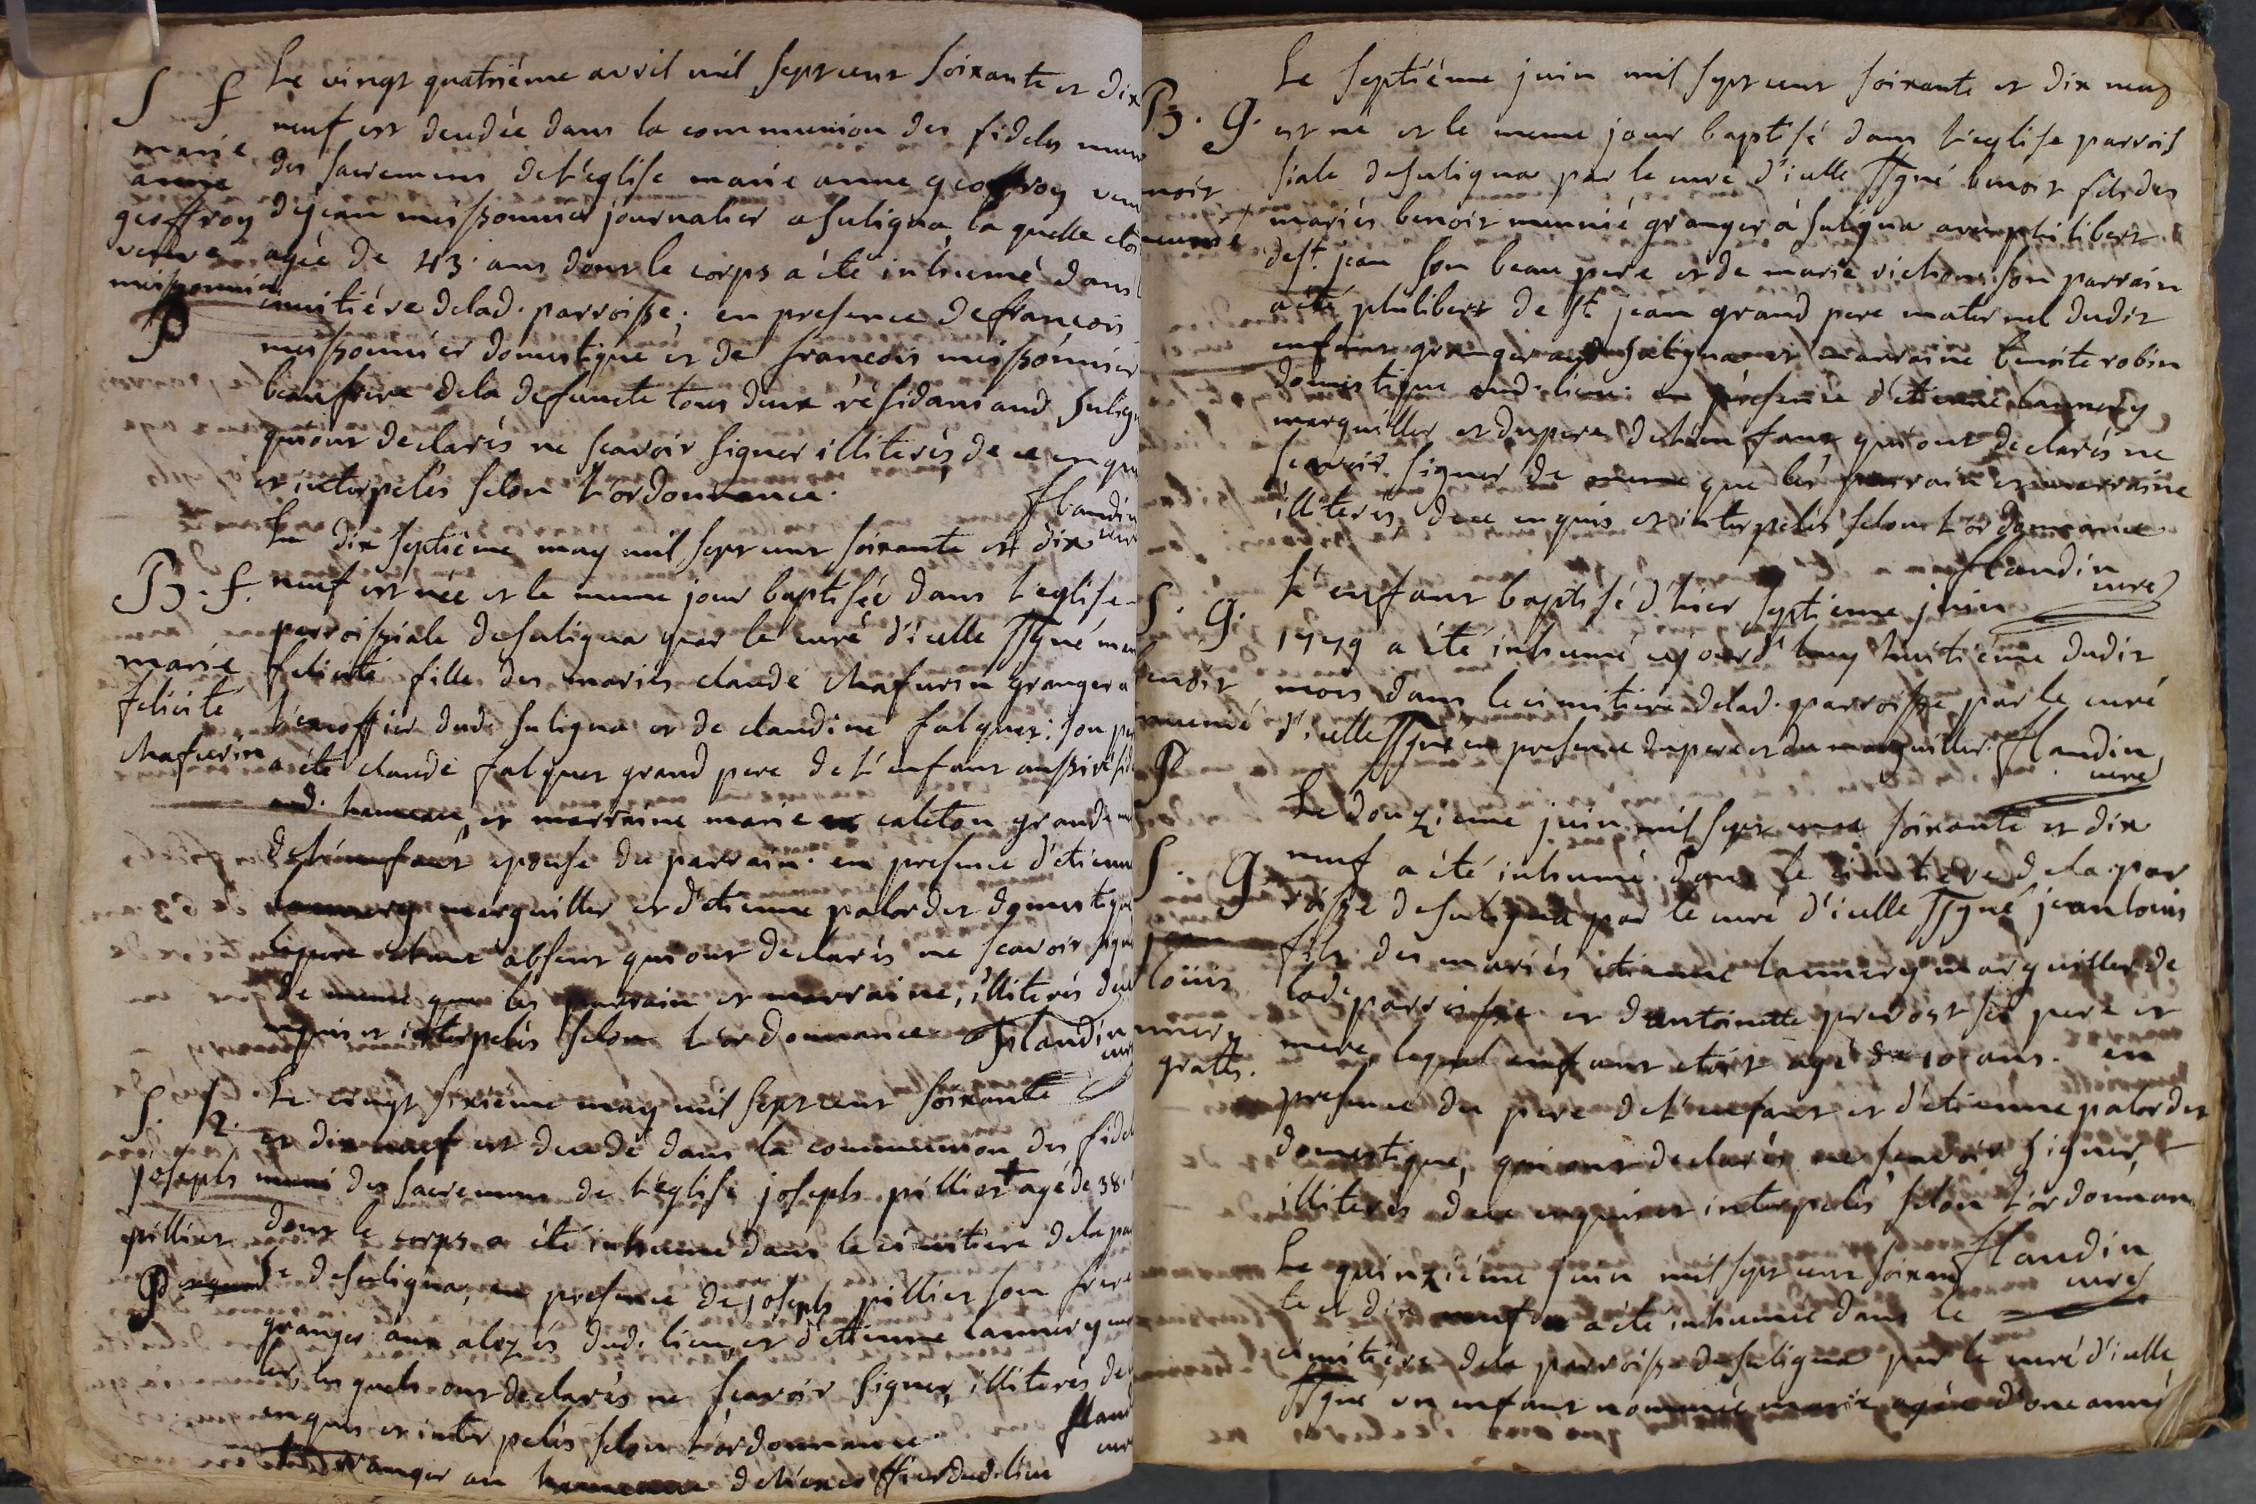 S f
marie
anne
geoffroy
veuve
meissonnier
P
Le vingt quatriéme avril mil sept cent soixante et dix
neuf est decedée dans la communion des fideles munie
des sacremens de l'église marie anne geoffroy veuve
de jean meissonnier journalier a suligna, la quelle etoi
agée de 43. ans dont le corps a été inhumé dans l
cimitiére de lad. parroisse; en presence de francois
meissonnier domestique et de francois meissonnier
beaufrere de la defuncte tous deux résidans aud. Sulign
qui ont declarés ne scavoir signer illiterés, de ce enqui
et interpelés selon l'ordonnance.
flandin
curé
B. f.
marie
felicité
Mafurin
Le dix septiéme may mil sept cent soixante et dix
neuf est née et le meme jour baptisée dans l'eglise
parroissiale de suligna par le curé d'icelle ssgné marie
felicité fille des mariés claude Mafurin granger a
l'exoffier dud. suligna et de claudine falquet: son par
a été claude falquet grand pere de l'enfant aussi resid
aud. hameau, et marraine marie caleton grand m
de l'enfant epouse du parrain. en presence d'etienne
lannery marguiller et d'etienne palordet domestique
le pere etant absent qui ont declarés ne scavoir signe
de meme que les parrain et marraine, illiterés de ce
enquis et interpelés selon l'ordonnance flandin
curé
S. h.
joseph
pillier
P
Le vingt sixiéme may mil sept cent soixante
et dix neuf est decedé dans la communion des fidel
muni des sacremens de l'eglise joseph pillier + agé de 38.
dont le corps a été inhumé dans le cimitiere de la par
de suligna, en presence de joseph pillier son frere
granger aux aloziés dud. lieu, et d'etienne lannery mar
ler, les quels ont declarés ne scavoir signer, illiterés de
enquis et interpelés selon l'ordonnance.
fland
curé
+ granger au hameau de l'exoffier dud. lieu
B. g.
noit
munié
Le septiéme juin mil sept cent soixante et dix neuf
est né et le meme jour baptisé dans l'eglise parrois
siale de suligna par le curé d'icelle ssgné benoit fils des
mariés benoit munié granger á suligna avec philibert
de st. jean son beau pere et de marie vichon: son parrain
a été philibert de st. jean grand pere maternel dudit
enfant granger aud. suligna et marraine benoite robin
domestique aud. lieu: en présence d'etienne lannery
marguiller et du pere de l'enfant qui ont declarés ne
scavoir signer de meme que les parrain et marraine
illiterés, de ce enquis et interpelés selon l'ordonnance
flandin
curé
S. g.
benoit
munié
P
L'enfant baptisé d'hier septieme juin
1779 a été inhumé cejourd'huy huitiéme dudit
mois dans le cimitiere de lad. parroisse par le curé
d'icelle ssgné en presence du pere et du marguiller. flandin
curé
S. g.
jean
louis
nnery
gratis.
Le douziéme juin mil sept cent soixante et dix
neuf a été inhumé dans le cimitiere de la par
roisse de suligna par le curé d'icelle ssgné jean louis
fils des mariés etienne lannery marguiller de
lade. parroisse et d'antoinette prevost ses pere et
mere, lequel enfant etoit agé de 10 ans. en
presence du pere de l'enfant et d'etienne palordet
domestique, qui ont declarés ne scavoir signer,
illiterés de ce enquis et interpelés selon l'ordonnan
flandin
curé
Le quinziéme juin mil sept cent soixan
te et dix neuf a été inhumée dans le
cimitiére de la parroisse de suligna par le curé d'icelle
ssgné un enfant nommée marie agée d'one année